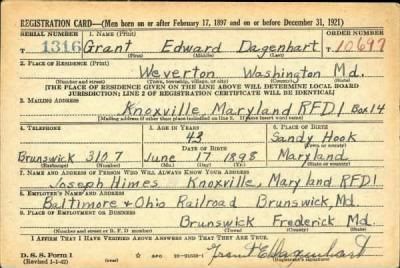 REGISTRATION CARD—(Men born on or after February 17, 1897 and on or before December 31, 1921)
SERIAL NUMBER 1. NAME (Print) ORDER NUMBER
T 1316 Grant Edward Dagenhart T 10697
(First) (Middle) (Last)
2. PLACE OF RESIDENCE (Print)
Weverton Washington Md.
(Number and street) (Town, township, village, or city) (County) (State)
[THE PLACE OF RESIDENCE GIVEN ON THE LINE ABOVE WILL DETERMINE LOCAL BOARD
JURISDICTION; LINE 2 OF REGISTRATION CERTIFICATE WILL BE IDENTICAL]
3. MAILING ADDRESS
Knoxville, Maryland RFD1 Box 14
[Mailing address if other than place indicated on line 2. If same insert word same]
4. TELEPHONE 5. AGE IN YEARS 6. PLACE OF BIRTH
43 Sandy Hook
DATE OF BIRTH (Town or county)
Brunswick 310.7 June 17 1898 Maryland
(Exchange) (Number) (Mo.) (Day) (Yr.) (State or country)
7. NAME AND ADDRESS OF PERSON WHO WILL ALWAYS KNOW YOUR ADDRESS
Joseph Himes Knoxville, Maryland RFD1
8. EMPLOYER'S NAME AND ADDRESS
Baltimore + Ohio Railroad Brunswick, Md.
9. PLACE OF EMPLOYMENT OR BUSINESS
Brunswick Frederick Md.
(Number and street or R. F. D. number) (Town) (County) (State)
I AFFIRM THAT I HAVE VERIFIED ABOVE ANSWERS AND THAT THEY ARE TRUE.
D. S. S. Form 1
(Revised 1-1-42) Grant E Dagenhart
(Registrant's signature)